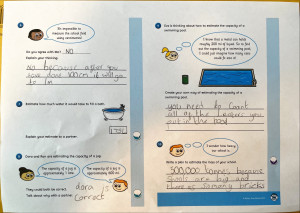 It's impossible to
measure the school field
using centimetres!
Do you agree with Dexter? NO
Explain your thinking.
No because after you
have done 100cm it will go
to 1m
Estimate how much water it would take to fill a bath.
Explain your estimate to a partner.
Dora and Ron are estimating the capacity of a cup.
The capacity of a cup is
approximately
The capacity of a cup is
approximately
They could both be correct.
Talk about why with a partner.
dora is
correct
Eva is thinking about how to estimate the capacity of a
swimming pool.
I know that a small can holds
roughly
of liquid. So to find
out the capacity of a swimming pool,
I could just imagine how many cans
could fit into it!
Create your own way of estimating the capacity of a
swimming pool.
you need to count
all of the
you
put in the pool
I wonder how heavy
our school is.
Write a plan to estimate the mass of your school.
300,000 tonnes because
are big and
there is so many bricks